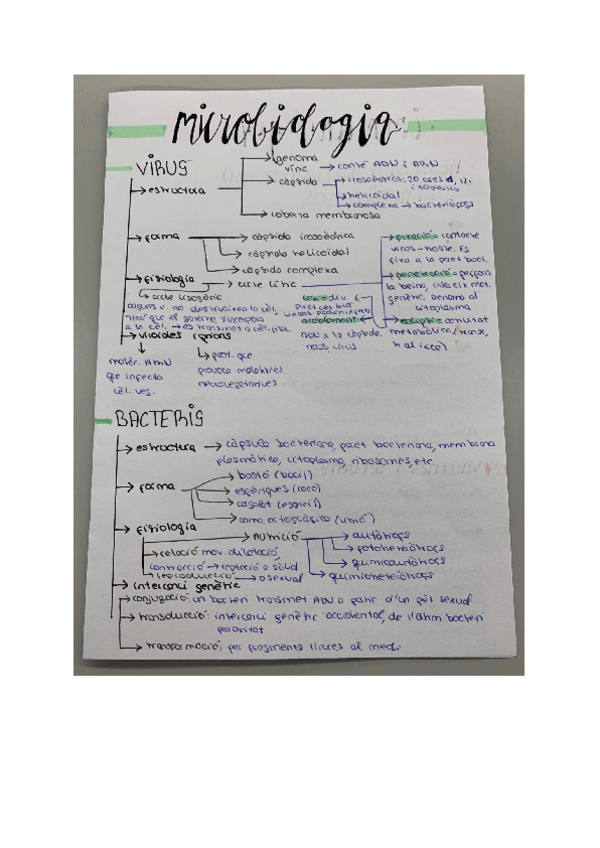 microbiologia
VIRUS
estructura
genoma víric → conté ADN i ARN
càpsida
icosaèdrica: 20 cares
helicoidal
complexa → bacteriòfags
coberta membranosa
forma
càpsida icosaèdrica
càpsida helicoïdal
càpsida complexa
fisiologia
cicle lític
fixació: contacte
virus-hoste. Es
fixa a la paret bact.
penetració: perfora
la beina, injecta mat.
genètic, penetra al
citoplasma
eclipsi: activitat
metabòlica
acoblament
ADN a la càpsida.
nous virus
cicle lisogènic
alguns v. no destrueixen la cèl.
sinó que el genoma s'incorpora
a la cèl. → es transmet a cèl. filla.
viroides i prions
molèc. ARN
que infecta
cèl. veg.
prot. que
provoca malalties
neurovegetatives
BACTERIS
estructura → càpsula bacteriana, paret bacteriana, membrana
plasmàtica, citoplasma, ribosomes, etc.
forma
bastó (bacil)
esfèriques (coco)
coma ortogràfica (vibrió)
fisiologia
nutrició
autòtrofs
fotoheteròtrofs
quimioautòtrofs
quimioheteròtrofs
relació mov. dilatació
contracció → reptació o sòlid
reproducció → asexual
intercanvi genètic
conjugació: un bacteri transmet ADN a partir d'un pèl sexual
transducció: intercanvi genètic accidental, de l'últim bacteri
parasitat
transformació: per fragments lliures al medi